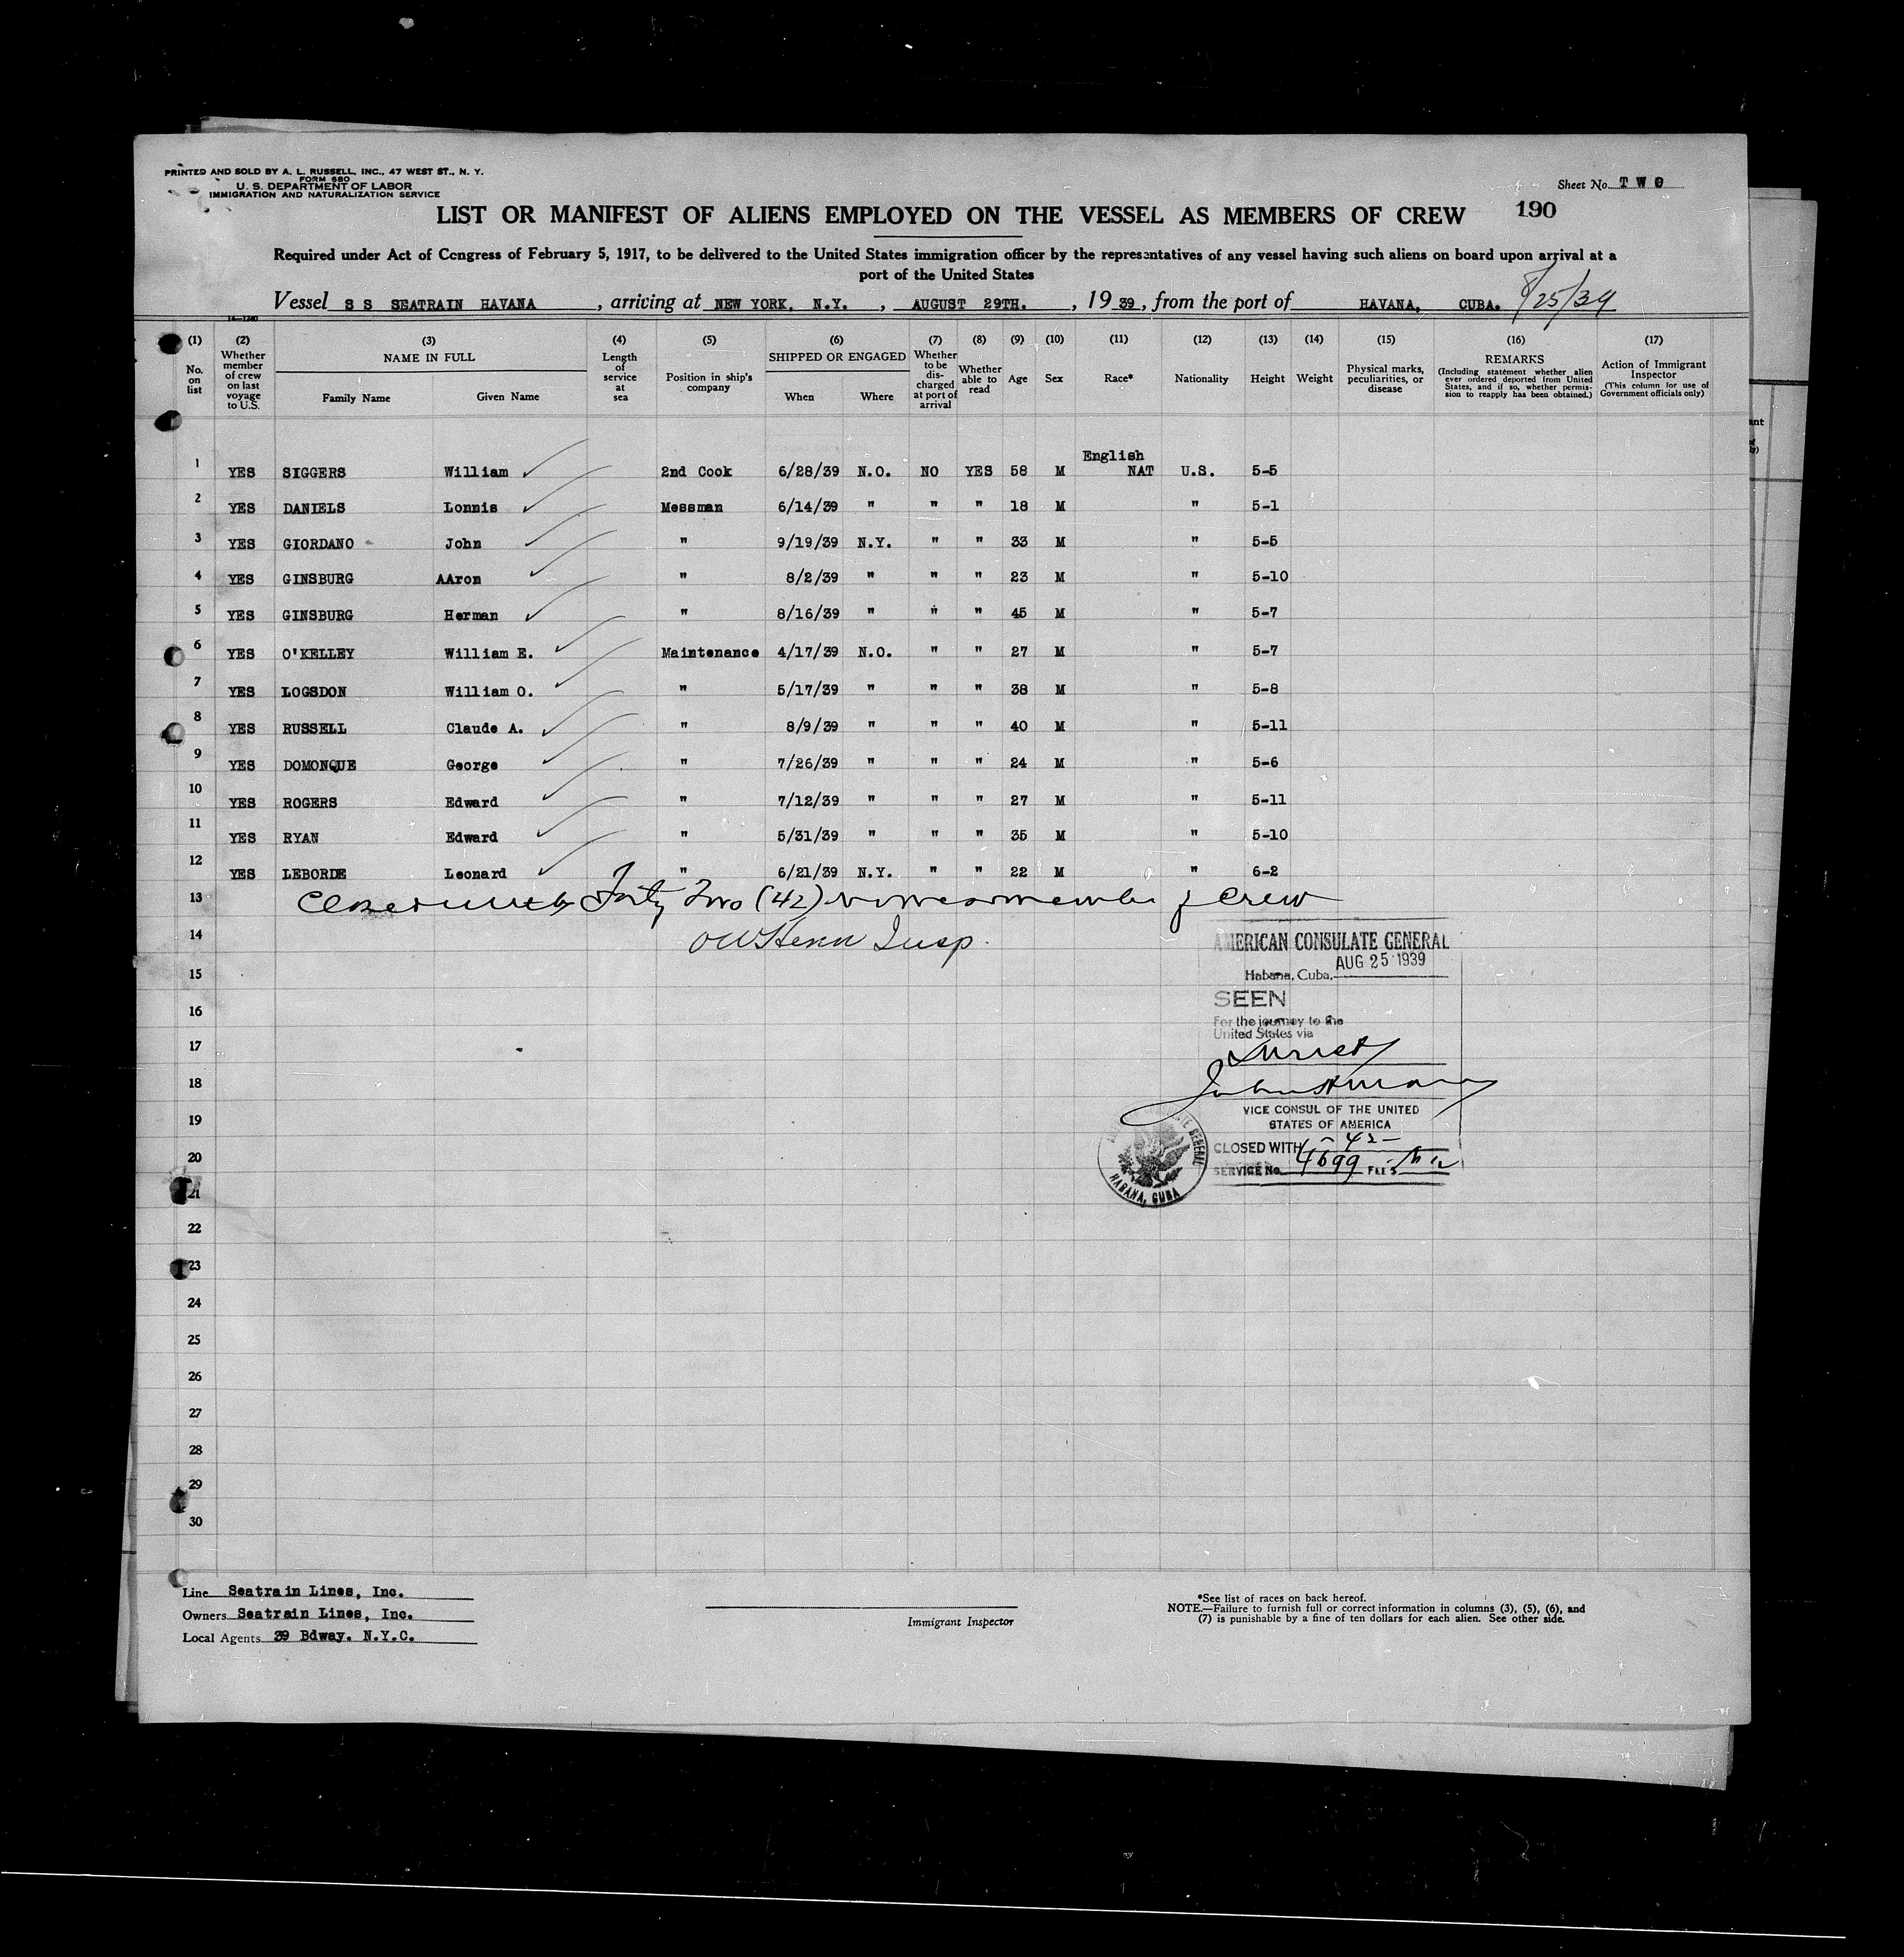 PRINTED AND SOLD BY A. L. RUSSELL, INC., 47 WEST ST., N. Y.
FORM 680
U. S. DEPARTMENT OF LABOR
IMMIGRATION AND NATURALIZATION SERVICE
Sheet No. TWO
LIST OR MANIFEST OF ALIENS EMPLOYED ON THE VESSEL AS MEMBERS OF CREW 190
Required under Act of Congress of February 5, 1917, to be delivered to the United States immigration officer by the representatives of any vessel having such aliens on board upon arrival at a
port of the United States
Vessel S S SEATRAIN HAVANA, arriving at NEW YORK, N.Y., AUGUST 29TH., 19 39, from the port of HAVANA, CUBA. 8/25/39
(1) (2) (3) (4) (5) (6) (7) (8) (9) (10) (11) (12) (13) (14) (15) (16) (17)
No. on list
Whether member of crew on last voyage to U.S.
NAME IN FULL
Family Name Given Name
Length of service at sea
Position in ship's company
SHIPPED OR ENGAGED
When Where
Whether to be discharged at port of arrival
Whether able to read
Age
Sex
Race*
Nationality
Height
Weight
Physical marks, peculiarities, or disease
REMARKS
(Including statement whether alien ever ordered deported from United States, and if so, whether permission to reapply has been obtained.)
Action of Immigrant Inspector
(This column for use of Government officials only)
1 YES SIGGERS William 2nd Cook 6/28/39 N.O. NO YES 58 M English NAT U.S. 5-5
2 YES DANIELS Lonnis Messman 6/14/39 " " " 18 M " 5-1
3 YES GIORDANO John " 9/19/39 N.Y. " " 33 M " 5-5
4 YES GINSBURG AAron " 8/2/39 " " " 23 M " 5-10
5 YES GINSBURG Herman " 8/16/39 " " " 45 M " 5-7
6 YES O'KELLEY William E. Maintenance 4/17/39 N.O. " " 27 M " 5-7
7 YES LOGSDON William O. " 5/17/39 " " " 38 M " 5-8
8 YES RUSSELL Claude A. " 8/9/39 " " " 40 M " 5-11
9 YES DOMONQUE George " 7/26/39 " " " 24 M " 5-6
10 YES ROGERS Edward " 7/12/39 " " " 27 M " 5-11
11 YES RYAN Edward " 5/31/39 " " " 35 M " 5-10
12 YES LEBORDE Leonard " 6/21/39 N.Y. " " 22 M " 6-2
13 Forty Two (42) crew
14 Insp.
15
16
17
18
19
20
21
22
23
24
25
26
27
28
29
30
AMERICAN CONSULATE GENERAL
AUG 25 1939
Habana, Cuba,
SEEN
For the journey to the
United States via
VICE CONSUL OF THE UNITED
STATES OF AMERICA
CLOSED WITH - 42 -
SERVICE No. 4699 FEE $
HABANA, CUBA
Line Seatrain Lines, Inc.
Owners Seatrain Lines, Inc.
Local Agents 39 Bdway. N.Y.C.
Immigrant Inspector
*See list of races on back hereof.
NOTE.—Failure to furnish full or correct information in columns (3), (5), (6), and
(7) is punishable by a fine of ten dollars for each alien. See other side.